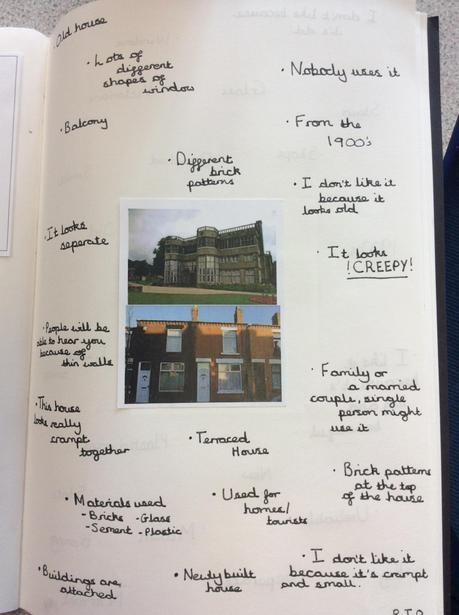 · Old house
· Lots of
different
shapes of
window
· Nobody uses it
· Balcony
· From the
1900's
· Different
brick
patterns
· I don't like it
because it
looks old
· It looks
seperate
· It looks
!CREEPY!
· People will be
able to hear you
because of
thin walls
· Family or
a married
couple, single
person might
use it
· This house
looks really
crampt
together
· Terraced
House
· Brick patterns
at the top
of the house
· Materials used
- Bricks - Glass
- Sement - Plastic
· Used for
homes/
tourists
· I don't like it
because it's crampt
and small.
· Buildings are
attached
· Newly built
house
P.T.O